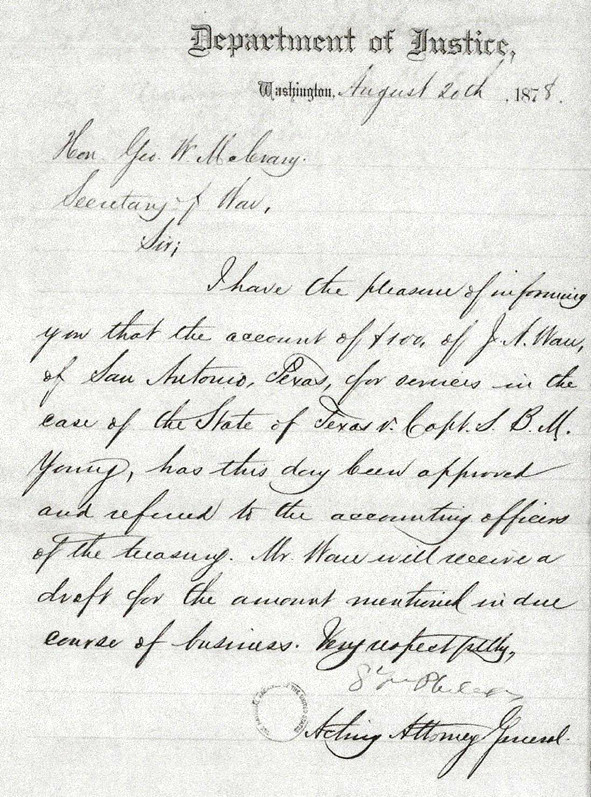 Department of Justice,
Washington, August 20th, 1878.
Hon. Geo. W. McCrary.
Secretary of War,
Sir;
I have the pleasure of informing
you that the account of $100, of J. A. Ware,
of San Antonio, Texas, for services in the
case of the State of Texas v. Capt. S. B. M.
Young, has this day been approved
and referred to the accounting officers
of the treasury. Mr. Ware will receive a
draft for the amount mentioned in due
course of business. Very respectfully,
Acting Attorney General.